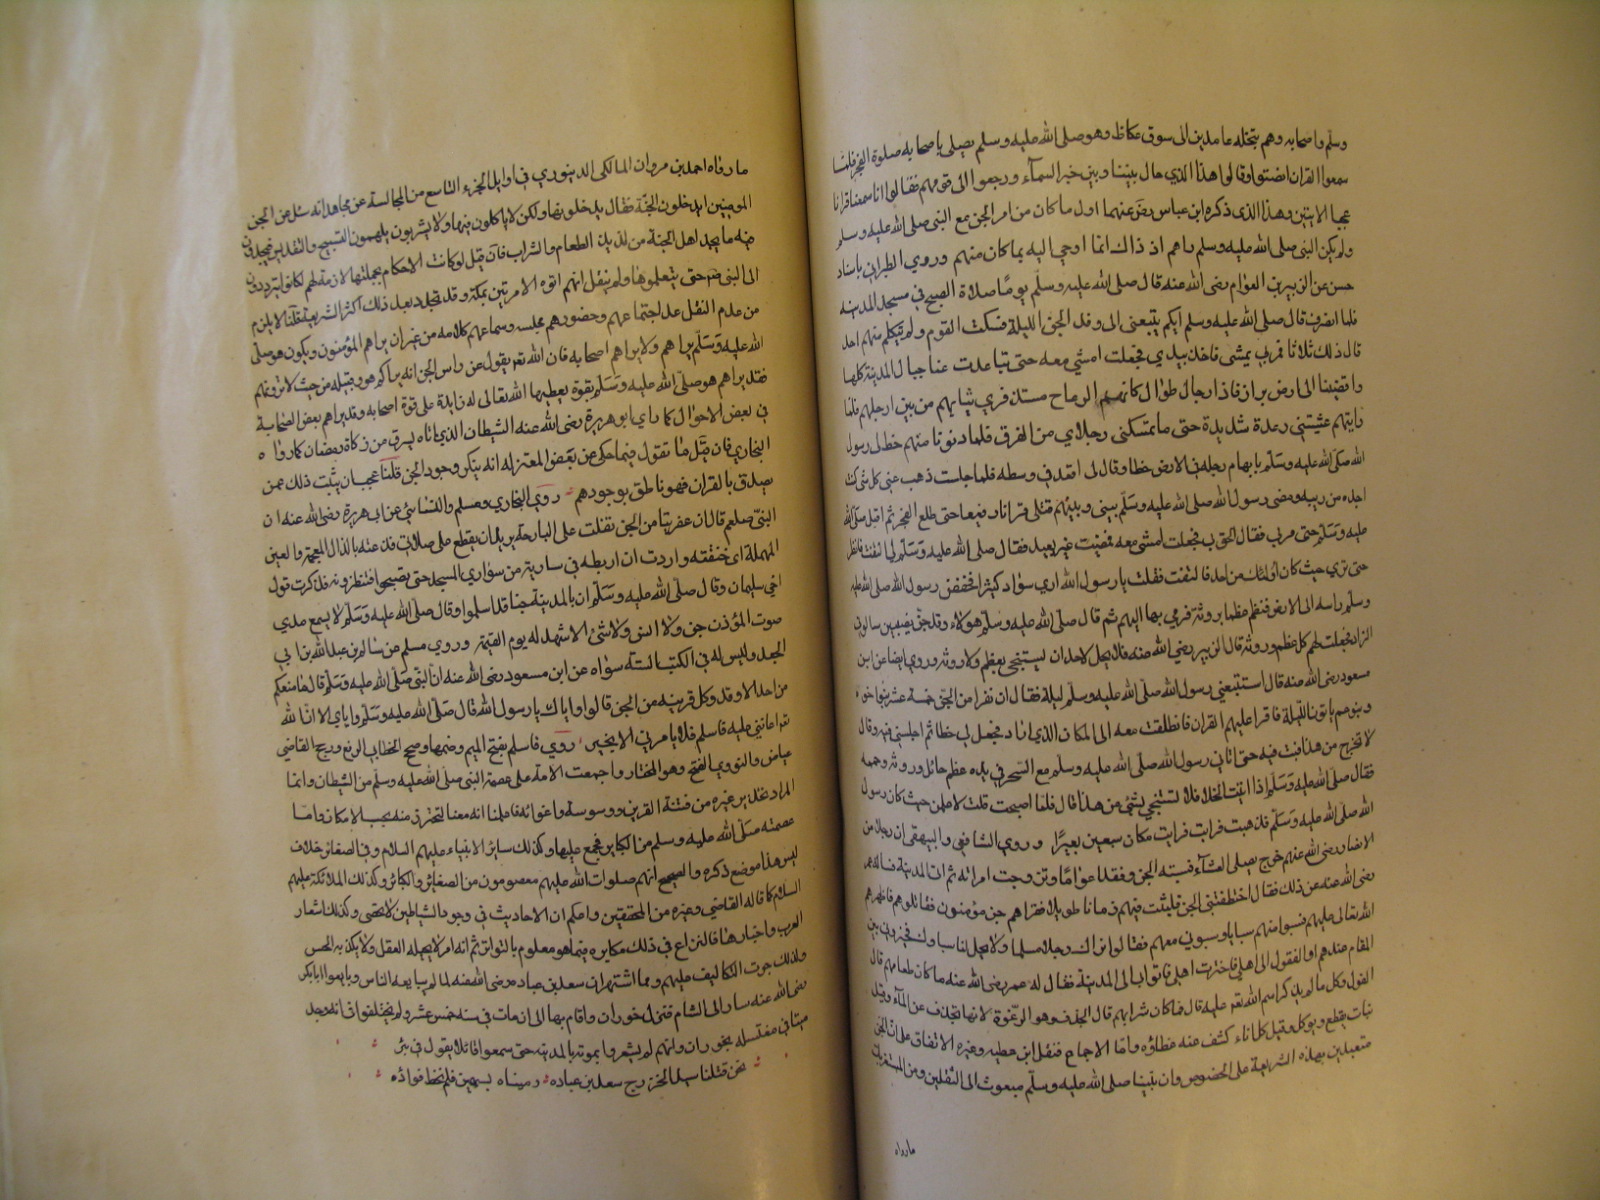 وسلم واصحابه وهم بنخله عامدين الى سوق عكاظ وهو صلى الله عليه وسلم يصلى باصحابه صلوة الفجر فلما
سمعوا القران انصتوا وقالوا هذا الذي حال بيننا وبين خبر السمآء ورجعوا الى قومهم فقالوا انا سمعنا قرانا
عجبا الايتين وهذا الذى ذكره ابن عباس رضى عنهما اول ما كان من امر الجن مع النبى صلى الله عليه وسلم
ولم يكن النبى صلى الله عليه وسلم راهم اذ ذاك انما اوحي اليه بما كان منهم وروي الطبراني باسناد
حسن عن الزبير بن العوام رضى الله عنه قال صلى الله عليه وسلم يومًا صلاة الصبح في مسجد المدينه
فلما انصرف قال صلى الله عليه وسلم ايكم يتبعنى الى وفد الجن الليلة فسكت القوم ولم يتكلم منهم احد
قال ذلك ثلاثا فمر بي يمشى فاخذ بيدي فجعلت امشي معه حتى تباعدت عنا جبال المدينة كلها
وافضينا الى ارض براز فاذا رجال طوال كانهم الرماح مستثفري ثيابهم من بين ارجلهم فلما
رايتهم غشيتني رعدة شديدة حتى ما تمسكنى رجلاي من الفرق فلما دنونا منهم خط لى رسول
الله صلى الله عليه وسلم بابهام رجله في الارض خطا وقال لى اقعد في وسطه فلما جلست ذهب عنى كل شئ كنت
اجده من ريبه ومضى رسول الله صلى الله عليه وسلم بينى وبينهم فتلى قرانا رفيعا حتى طلع الفجر ثم اقبل صلى الله
عليه وسلم حتى مر بي فقال الحق بي فجعلت امشي معه فمضيت غير بعيد فقال صلى الله عليه وسلم لي التفت فانظر
حتى ترى حيث كان اولئك من احد فالتفت فقلت يا رسول الله ارى سوادا كثيرا فخفض رسول الله صلى الله عليه
وسلم راسه الى الارض فنظم عظما بروثة فرمي بها اليهم ثم قال صلى الله عليه وسلم هولاء وفد جن نصيبين سالوني
الزاد فجعلت لهم كل عظم وروثة قال الزبير رضي الله عنه فلا يحل لاحد ان يستنجى بعظم ولا روثة وروي ايضا عن ابن
مسعود رضى الله عنه قال استتبعني رسول الله صلى الله عليه وسلم ليلة فقال ان نفرا من الجن خمسة عشر بنوا اخوة
وبنو عم ياتونا الليلة فاقرا عليهم القران فانطلقت معه الى المكان الذي اراد فجعل لى خطا ثم اجلسني فيه وقال
لا تخرج من هذا فبت فيه حتى اتاني رسول الله صلى الله عليه وسلم مع السحر في يده عظم حائل وروثة وحممه
فقال صلى الله عليه وسلم اذا اتيت الخلا فلا تستنجي بشئ من هذا قال فلما اصبحت قلت لاعلمن حيث كان رسول
الله صلى الله عليه وسلم فذهبت فرايت مكان سبعين بعيرًا وروي الشافعي والبيهقى ان رجلا من
الانصار رضي الله عنهم خرج يصلى العشآء فسبته الجن وفقد اعوامًا وتزوجت امراته ثم اتى المدينة فساله عمر
رضى الله عنه عن ذلك فقال اختطفتني الجن فلبثت فيهم زمانا طويلا فغزاهم جن مؤمنون فقاتلوهم فاظهرهم
الله تعالى عليهم فسبوا منهم سبايا وسبونى معهم فقالوا نراك رجلا مسلما ولا يحل لنا سباوك فخيروني بين
المقام عندهم او القفول الى اهلى فاخترت اهلى فاتوا بى الى المدينة فقال له عمر رضى الله عنه ما كان طعامهم قال
الفول وكل ما لم يذكر اسم الله تعم عليه قال فما كان شرابهم قال الجذف وهو الرغوة لانها تجذف عن المآء وقيل
نبات يقطع ويوكل وقيل كل اناء كشف عنه غطاؤه واما الاجماع فنقل ابن عطيه وغيره الاتفاق على ان الجن
متعبدين بهذه الشريعة على الخصوص وان نبينا صلى الله عليه وسلم مبعوث الى الثقلين ومن المستغربات
مارواه
ما رواه احمد بن مروان المالكى الدينوري في اوايل الجزء التاسع من المجالسة عن مجاهد انه سئل عن الجن
المومنين ايدخلون الجنة فقال يدخلونها ولكن لا ياكلون فيها ولا يشربون يلهمون التسبيح والتقديس فيجدون
فيه ما يجد اهل الجنة من لذيذ الطعام والشراب فان قيل لو كانت الاحكام بجملتها لازمة لهم لكانوا يترددون
الى النبى صم حتى يتعلموها ولم ينقل انهم اتوه الا مرتين بمكة وقد تجدد بعد ذلك اكثر الشريعة قلنا لا يلزم
من عدم النقل عدم اجتماعهم وحضورهم مجلسه وسماعهم كلامه من غير ان يراهم المؤمنون ويكون هو صلى
الله عليه وسلم يراهم ولا يراهم اصحابه فان الله تعم يقول عن راس الجن انه يراكم هو وقبيله من حيث لا ترونهم
فقد يراهم هو صلى الله عليه وسلم بقوة يعطيها الله تعالى له زايدة على قوة اصحابه وقد يراهم بعض الصحابة
في بعض الاحوال كما راي ابو هريرة رضى الله عنه الشيطان الذي اتاه ليسرق من زكاة رمضان كما رواه
البخاري فان قيل ما تقول فيما حكى عن بعض المعتزله انه ينكر وجود الجن قلنا عجب ان يثبت ذلك عمن
يصدق بالقران فهو ناطق بوجودهم روي البخاري ومسلم والنسائي عن ابى هريرة رضى الله عنه ان
النبى صلعم قال ان عفريتا من الجن تفلت على البارحة يريد ان يقطع على صلاتي فذعته بالذال المعجمة والعين
المهملة اى خنقته واردت ان اربطه في سارية من سواري المسجد حتى يصبحوا فتنظروه فذكرت قول
اخي سليمان وقال صلى الله عليه وسلم ان بالمدينة جنا قد اسلموا وقال صلى الله عليه وسلم لا يسمع مدي
صوت المؤذن جن ولا انس ولا شئ الا شهد له يوم القيمة وروي مسلم عن سالم بن عبد الله بن ابي
الجعد وليس له في الكتب الستة سواه عن ابن مسعود رضى الله عنه ان النبى صلى الله عليه وسلم قال ما منكم
من احد الا وقد وكل قرينه من الجن قالوا واياك يا رسول الله قال صلى الله عليه وسلم واياي الا ان الله
تعم اعانني عليه فاسلم فلا يامرني الا بخير روي فاسلم بفتح الميم وضمها وصحح الخطابي الرفع ورجح القاضي
عياض والنووي الفتح وهو المختار واجمعت الامة على عصمة النبى صلى الله عليه وسلم من الشيطان وانما
المراد تحذير غيره من فتنة القرين ووسوسته واغوائه فاعلمنا انه معنا لنحترز منه بحسب الامكان واما
عصمته صلى الله عليه وسلم من الكباير فمجمع عليها وكذلك ساير الانبياء عليهم السلام وفي الصغائر خلاف
ليس هذا موضع ذكره والصحيح انهم صلوات الله عليهم معصومون من الصغائر والكبائر وكذلك الملائكة عليهم
السلام كما قاله القاضي وغيره من المحققين واعلم ان الاحاديث في وجود الشياطين لا تحصى وكذلك اشعار
العرب واخبارها فالنزاع في ذلك مكابره فيما هو معلوم بالتواتر ثم انه امر لا يحيله العقل ولا يكذبه الحس
ولذلك جرت التكاليف عليهم ومما اشتهر ان سعد بن عباده رضى الله عنه لما لم يبايعه الناس وبايعوا ابا بكر
رضى الله عنه سار الى الشام فنزل حوران واقام بها الى ان مات في سنه خمس عشر ولم يختلفوا انه وجد
ميتا في مغتسله بحوران وانهم لم يشعروا بموته بالمدينه حتى سمعوا قائلا يقول في بئر
نحن قتلنا سيد الخزرج سعد بن عباده ورميناه بسهمين فلم نخط فواده